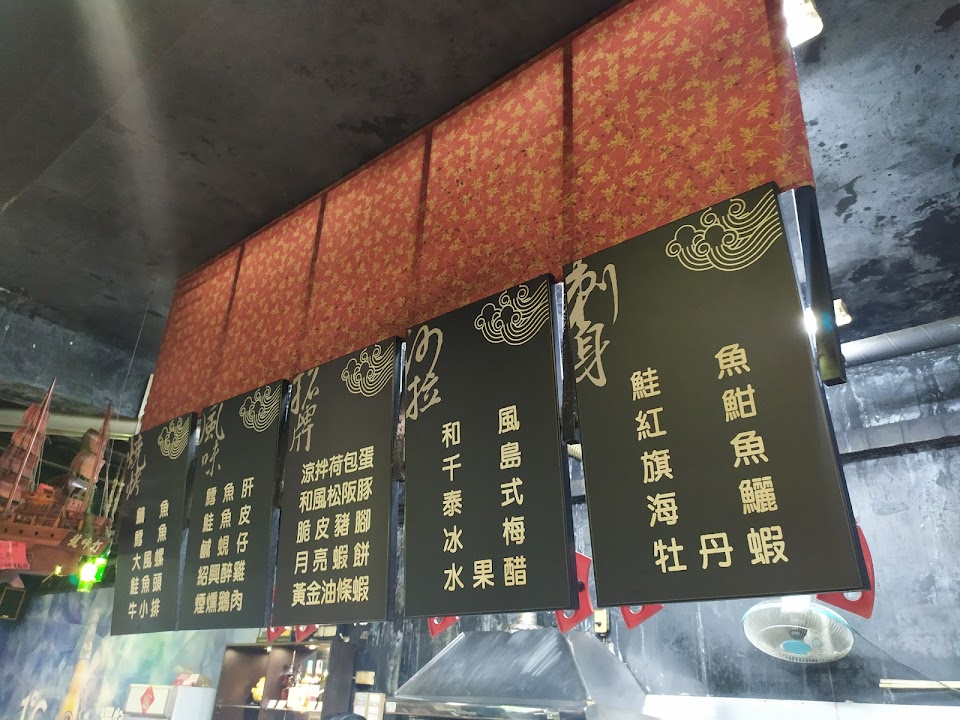 燒烤
大風螺
鮭魚頭
牛小排
風味
鱈魚肝
鮭魚皮
鹹蜆仔
紹興醉雞
煙燻鵝肉
招牌
涼拌荷包蛋
和風松阪豚
脆皮豬腳
月亮蝦餅
黃金油條蝦
沙拉
和風
千島
泰式
冰梅
水果醋
刺身
鮭魚
紅魽
旗魚
海鱺
牡丹蝦